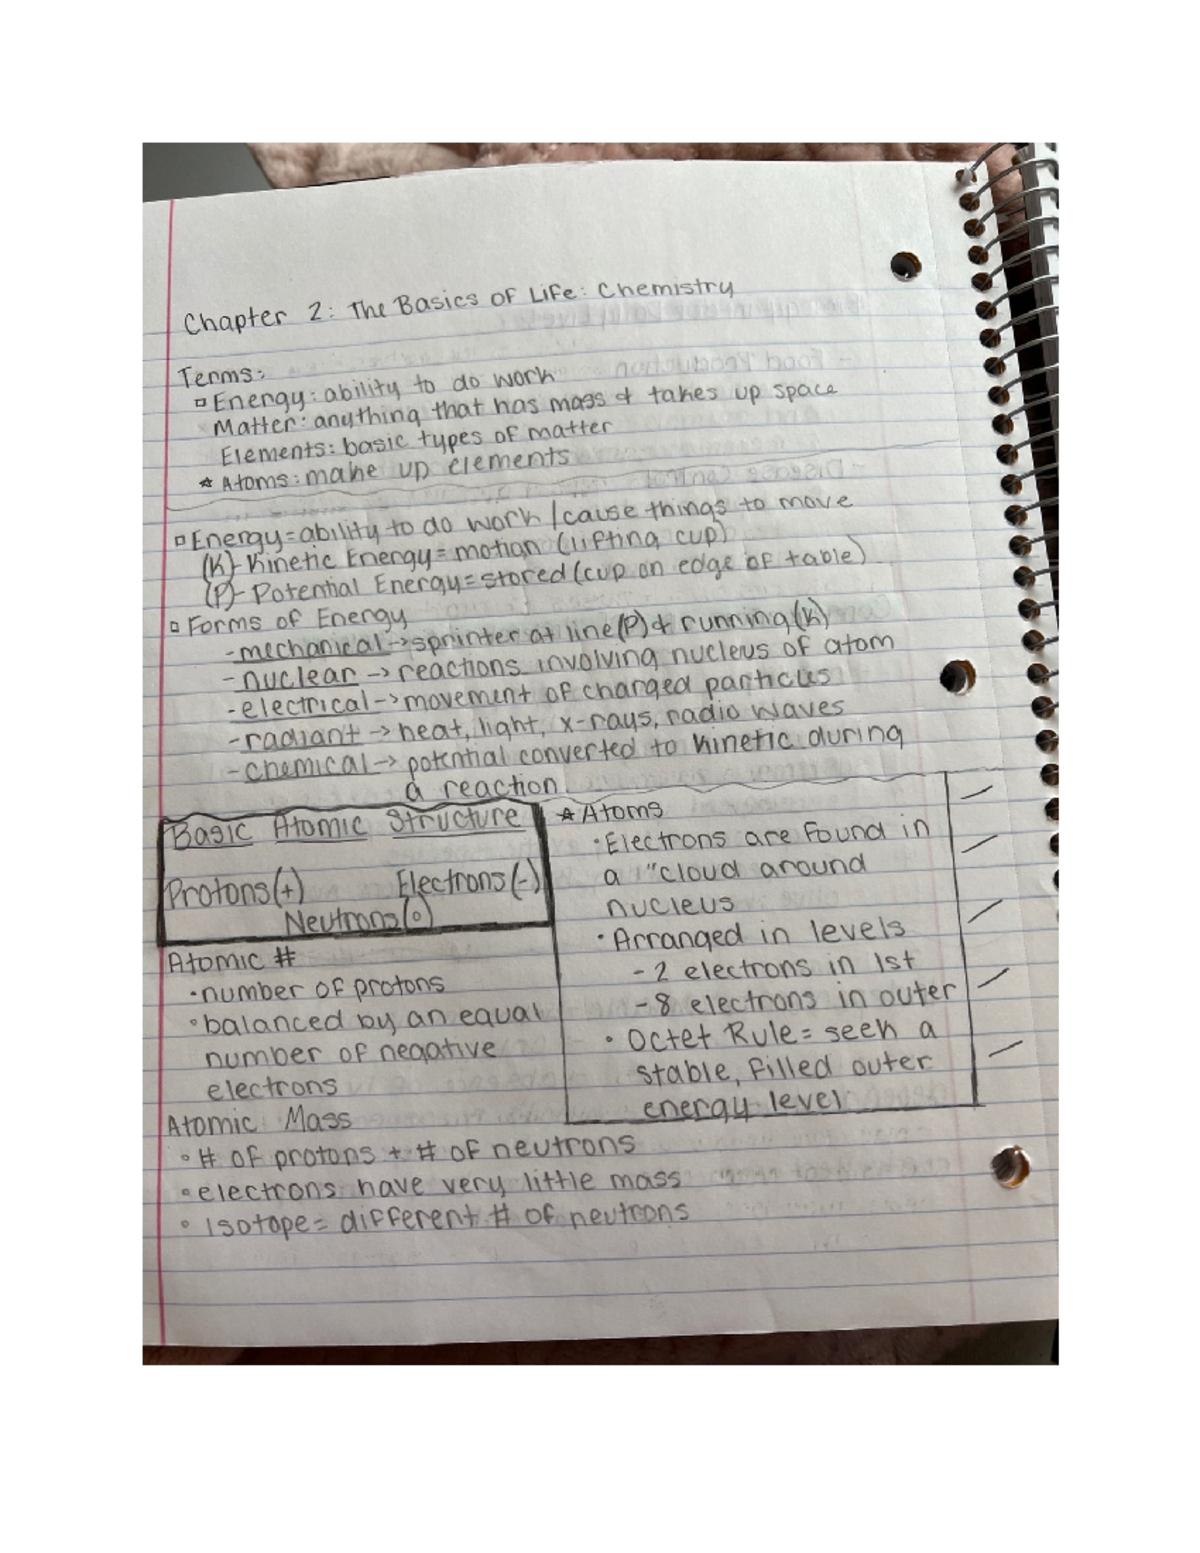 Chapter 2: The Basics of Life: Chemistry
Terms:
▫ Energy: ability to do work
Matter: anything that has mass & takes up space
Elements: basic types of matter
☆ Atoms: make up elements
▫ Energy = ability to do work / cause things to move
(K)- Kinetic Energy = motion (lifting cup)
(P)- Potential Energy = stored (cup on edge of table)
▫ Forms of Energy
- mechanical -> sprinter at line (P) & running (K)
- nuclear -> reactions involving nucleus of atom
- electrical -> movement of charged particles
- radiant -> heat, light, x-rays, radio waves
- chemical -> potential converted to kinetic during
a reaction
Basic Atomic Structure
Protons (+) Electrons (-)
Neutrons (0)
Atomic #
• number of protons
• balanced by an equal
number of negative
electrons
Atomic Mass
• # of protons + # of neutrons
• electrons have very little mass
• Isotope = different # of neutrons
☆ Atoms
• Electrons are found in
a "cloud around
nucleus
• Arranged in levels
- 2 electrons in 1st
- 8 electrons in outer
• Octet Rule = seek a
stable, filled outer
energy level